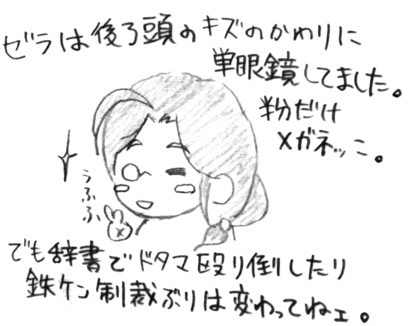 ゼラは後ろ頭のキズのかわりに
単眼鏡してました。
粉だけ
メガネッこ。
うふふ
でも辞書でドタマ殴り倒したり
鉄ケン制裁ぶりは変わってねェ。